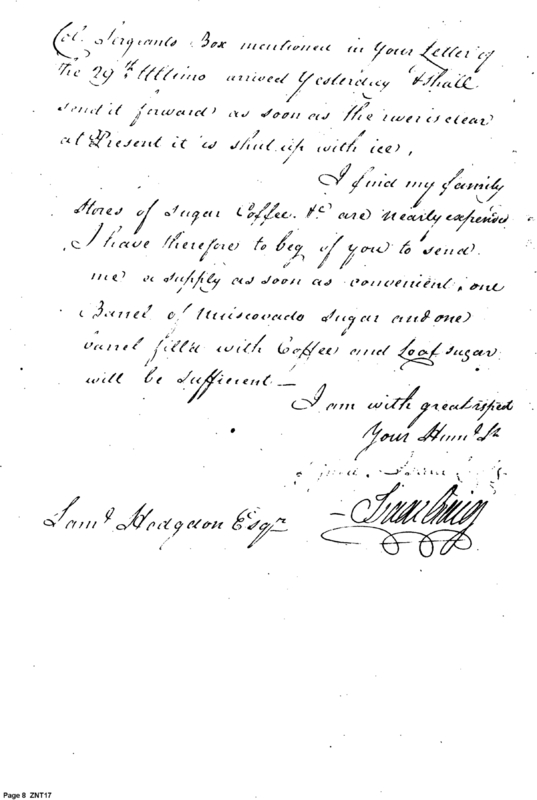 Col. Sergeants Box mentioned in Your Letter of
the 29th. Ultimo arrived Yesterday & shall
send it forward as soon as the river is clear
at Present it is shut up with ice.
I find my family
Stores of Sugar Coffee &c are nearly expended
I have therefore to beg of you to send
me a supply as soon as convenient, one
Barrel of Muscovado Sugar and one
barrel filld with Coffee and Loaf sugar
will be Sufficient —
I am with great respect
Your Humb. St
— Isaac Craig
Saml. Hodgdon Esqr.
Page 8 ZNT17